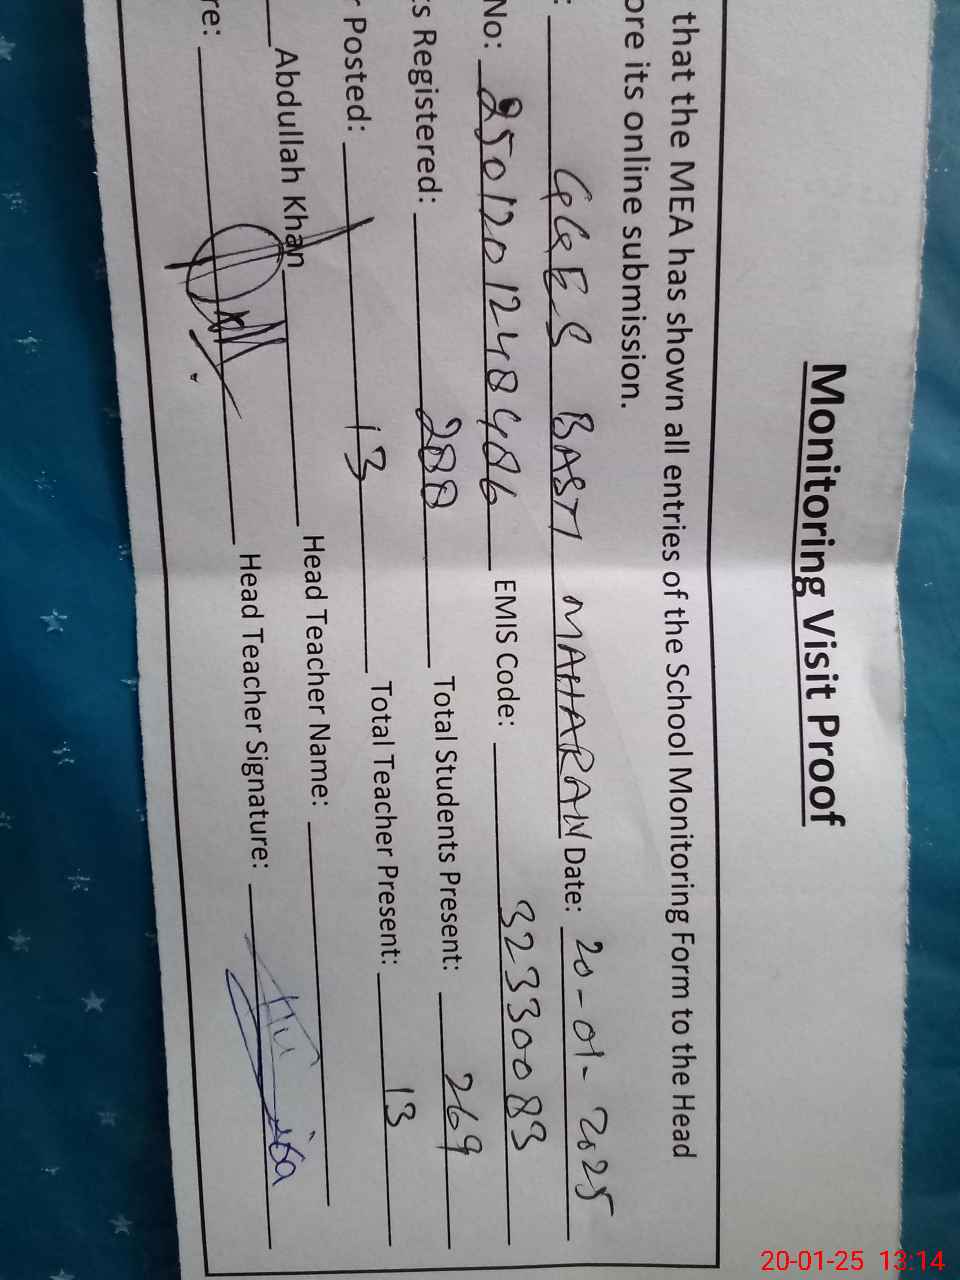 Monitoring Visit Proof
that the MEA has shown all entries of the School Monitoring Form to the Head
ore its online submission.
: GGES BASTI MAHARAN Date: 20-01-2025
No: 2501201248486 EMIS Code: 32330083
ts Registered: 288 Total Students Present: 269
r Posted: 13 Total Teacher Present: 13
Abdullah Khan Head Teacher Name:
re: Head Teacher Signature:
20-01-25 13:14